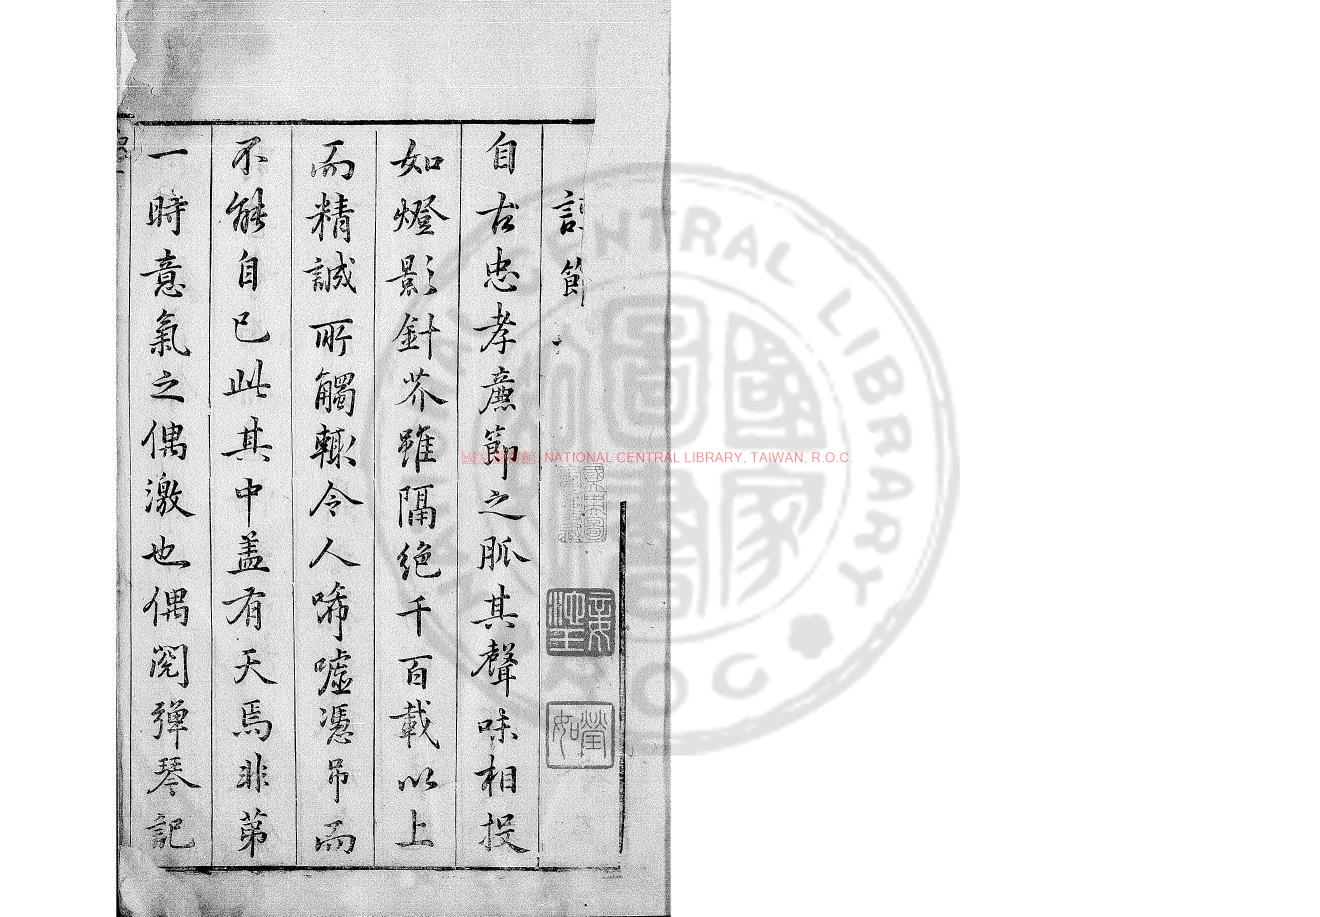 節
自古忠孝廉節之脈其聲味相投
如燈影針芥雖隔絶千百載以上
而精誠所觸輙令人唏嘘憑吊而
不能自已此其中盖有天焉非第
一時意氣之偶激也偶閱彈琴記
國家圖書館, NATIONAL CENTRAL LIBRARY, TAIWAN, R.O.C.
CENTRAL LIBRARY